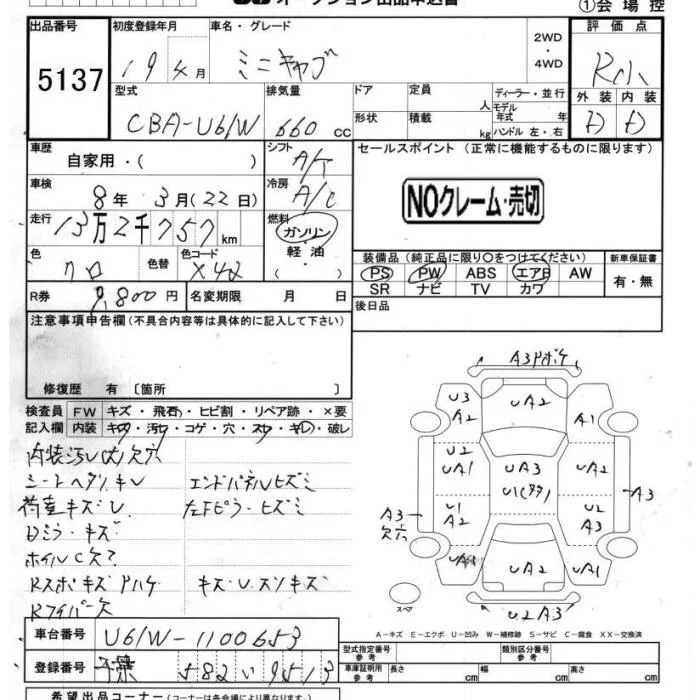 オークション出品申込書
①会場控
出品番号 初度登録年月 車名・グレード 評価点
5137 19年4月 ミニキャブ 2WD・4WD R小
型式 排気量 ドア 定員 人 ディーラー・並行 外装 内装
CBA-U61W 660 cc 形状 積載 kg モデル年式 年 ハンドル 左・右 D D
車歴 シフト セールスポイント (正常に機能するものに限ります)
自家用・( ) A/T
車検 冷房 NOクレーム・売切
8年 3月(22日) A/C
走行 13万2千757km 燃料 ガソリン・軽油・
色 クロ 色替 色コード X42
装備品 (純正品に限り〇をつけてください) 新車保証書
PS PW ABS エアB AW 有・無
SR ナビ TV カワ
R券 9,800円 名変期限 月 日 後日品
注意事項申告欄(不具合内容等は具体的に記入して下さい)
修復歴 有 [箇所 ]
検査員 FW キズ・飛石・ヒビ割・リペア跡・×要
記入欄 内装 キズ・汚レ・コゲ・穴・スレ・キレ・破レ
内装汚U
シートヘタリキレ エンドパネルヒズミ
荷室キズU 左Fピラーヒズミ
Dミラーキズ
ホイルC欠
Rスポキズハゲ キズ・U
Rワイパー欠
A3
U3 A2 UA2 A1
U2 UA1 UA3 UA2
U1
A3 U1 A2 U2 A3 A3
UA2 UA1
スペア
U2 A3
A-キズ E-エクボ U-凹み W-補修跡 S-サビ C-腐食 XX-交換済
車台番号 U61W-1100653
型式指定番号 参考 類別区分番号 参考
登録番号 千葉 582 い 9513
車庫証明用 参考 長さ cm 幅 cm 高さ cm
希望出品コーナー(お客様は各会場により異なります)